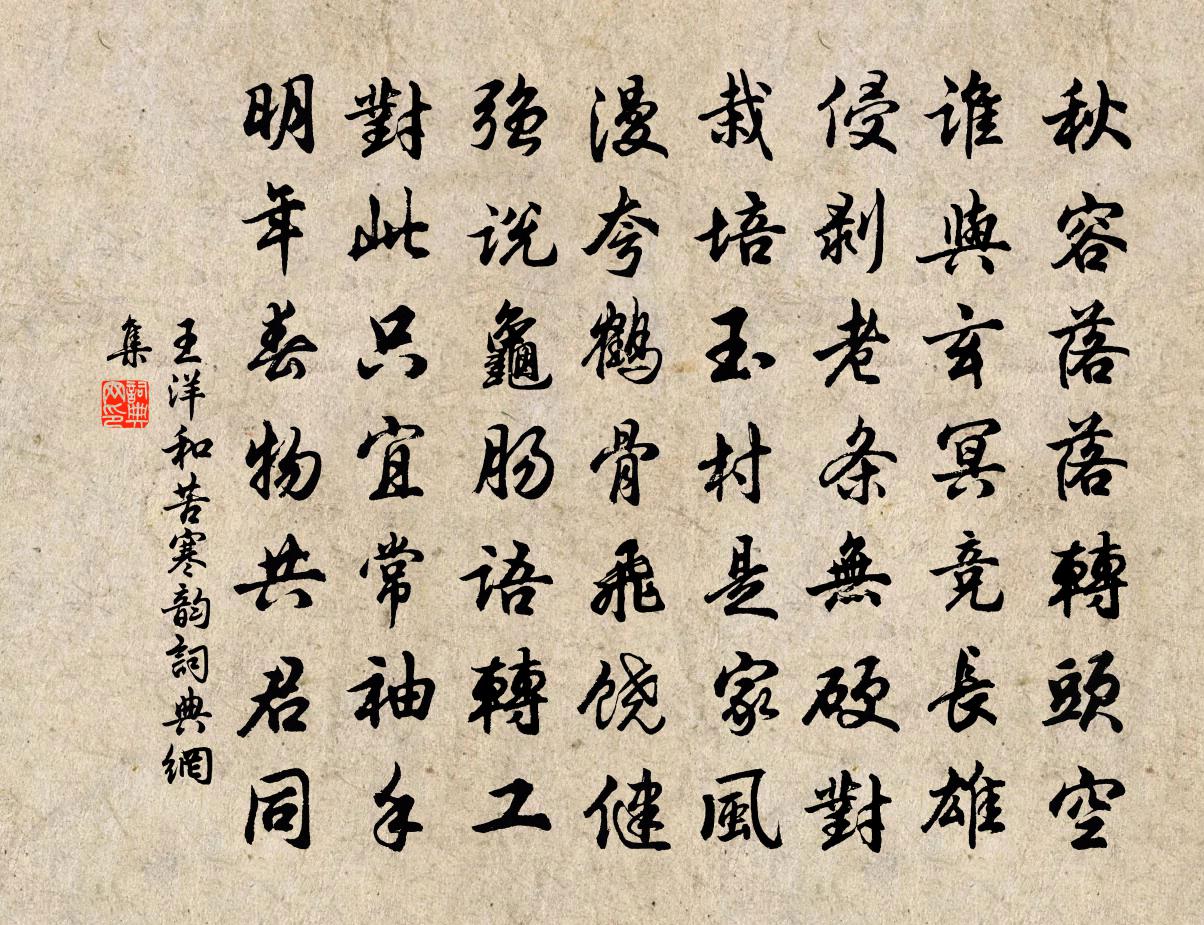 秋容落落轉頭空
誰與玄冥竞長雄
侵剥老条無硬對
栽培玉村是家風
漫夸鶴骨飛饶健
强説龜肠語轉工
對此只宜常袖手
明年春物共君同
王洋和苦寒韵詞典網
集
詞典网印